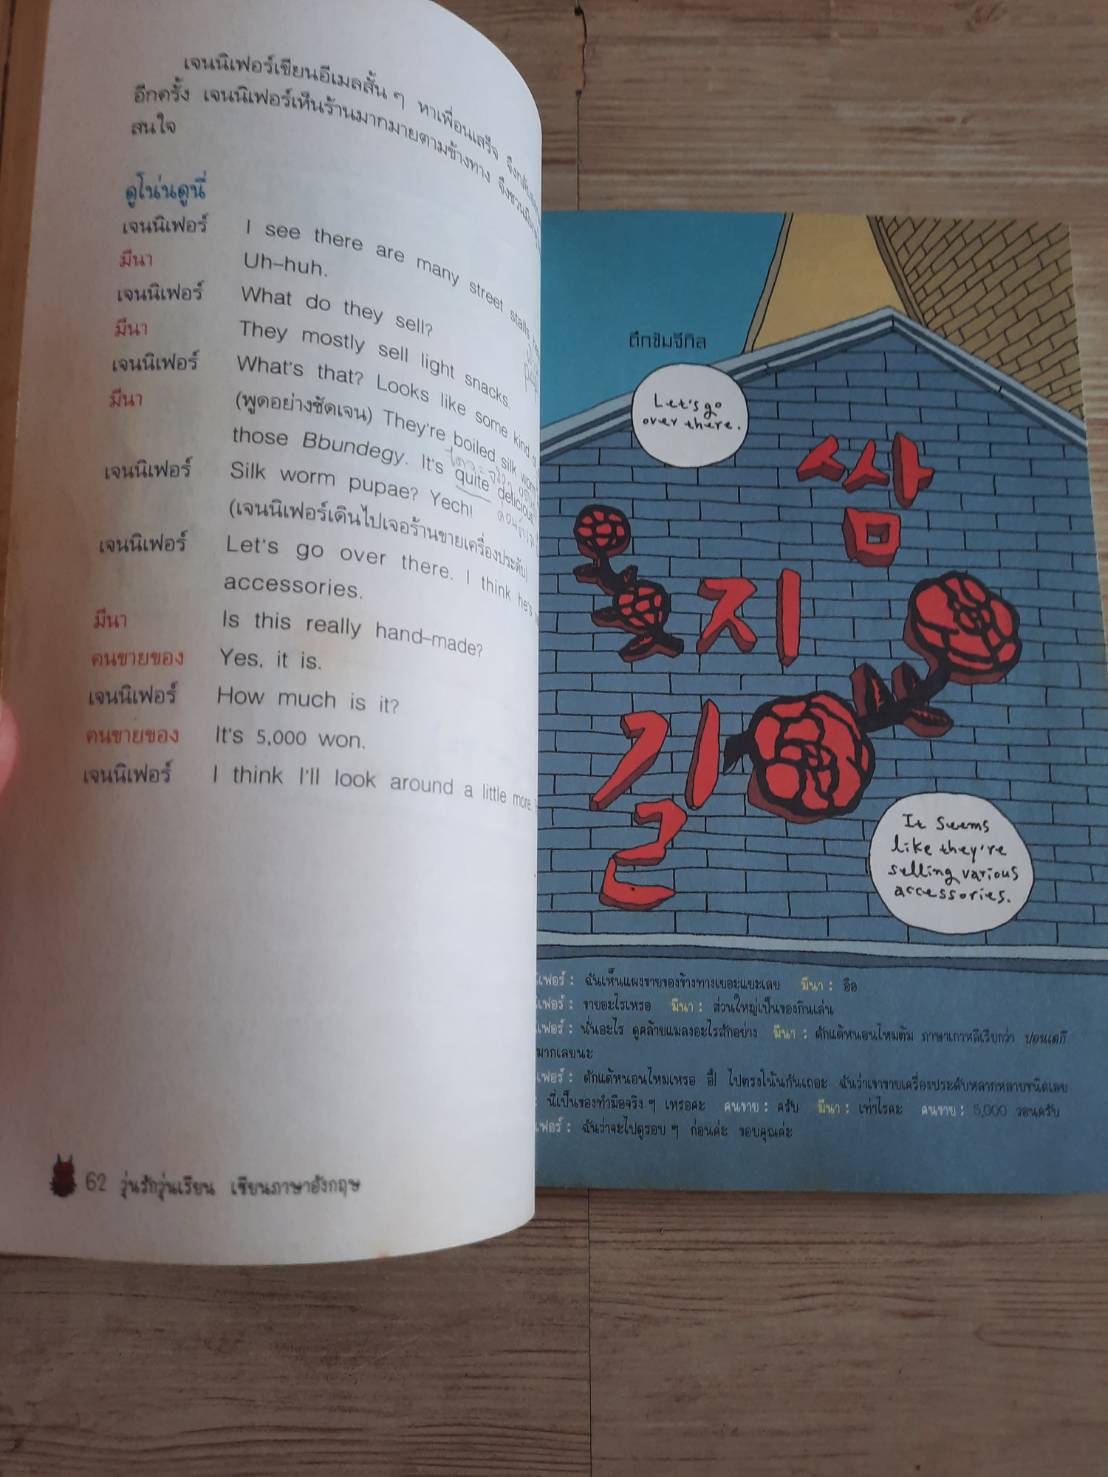 เจนนิเฟอร์เขียนอีเมลสั้น ๆ หาเพื่อนเสร็จ
อีกครั้ง เจนนิเฟอร์เห็นร้านมากมายตามข้างทาง
สนใจ
ดูโน่นดูนี่
เจนนิเฟอร์ I see there are many street stalls
มีนา Uh-huh.
เจนนิเฟอร์ What do they sell?
มีนา They mostly sell light snacks.
เจนนิเฟอร์ What's that? Looks like some kind
มีนา (พูดอย่างชัดเจน) They're boiled silk
those Bbundegy. It's quite delicious
เจนนิเฟอร์ Silk worm pupae? Yech!
(เจนนิเฟอร์เดินไปเจอร้านขายเครื่องประดับ)
เจนนิเฟอร์ Let's go over there. I think he's
accessories.
มีนา Is this really hand-made?
คนขายของ Yes, it is.
เจนนิเฟอร์ How much is it?
คนขายของ It's 5,000 won.
เจนนิเฟอร์ I think I'll look around a little more.
62 วุ่นรักวุ่นเรียน เขียนภาษาอังกฤษ
ตึกซัมจีกิล
Let's go
over there.
쌈
지
길
It seems
like they're
selling various
accessories.
เฟอร์ : ฉันเห็นแผงขายของข้างทางเยอะแยะเลย มีนา : อือ
เฟอร์ : ขายอะไรเหรอ มีนา : ส่วนใหญ่เป็นของกินเล่น
เฟอร์ : นั่นอะไร ดูคล้ายแมลงอะไรสักอย่าง มีนา : ดักแด้หนอนไหมต้ม ภาษาเกาหลีเรียกว่า ปอนเดกี
มากเลยนะ
เฟอร์ : ดักแด้หนอนไหมเหรอ อี๋! ไปตรงโน้นกันเถอะ ฉันว่าเขาขายเครื่องประดับหลากหลายชนิดเลย
: นี่เป็นของทำมือจริง ๆ เหรอคะ คนขาย : ครับ มีนา : เท่าไรคะ คนขาย : 5,000 วอนครับ
เฟอร์ : ฉันว่าจะไปดูรอบ ๆ ก่อนค่ะ ขอบคุณค่ะ